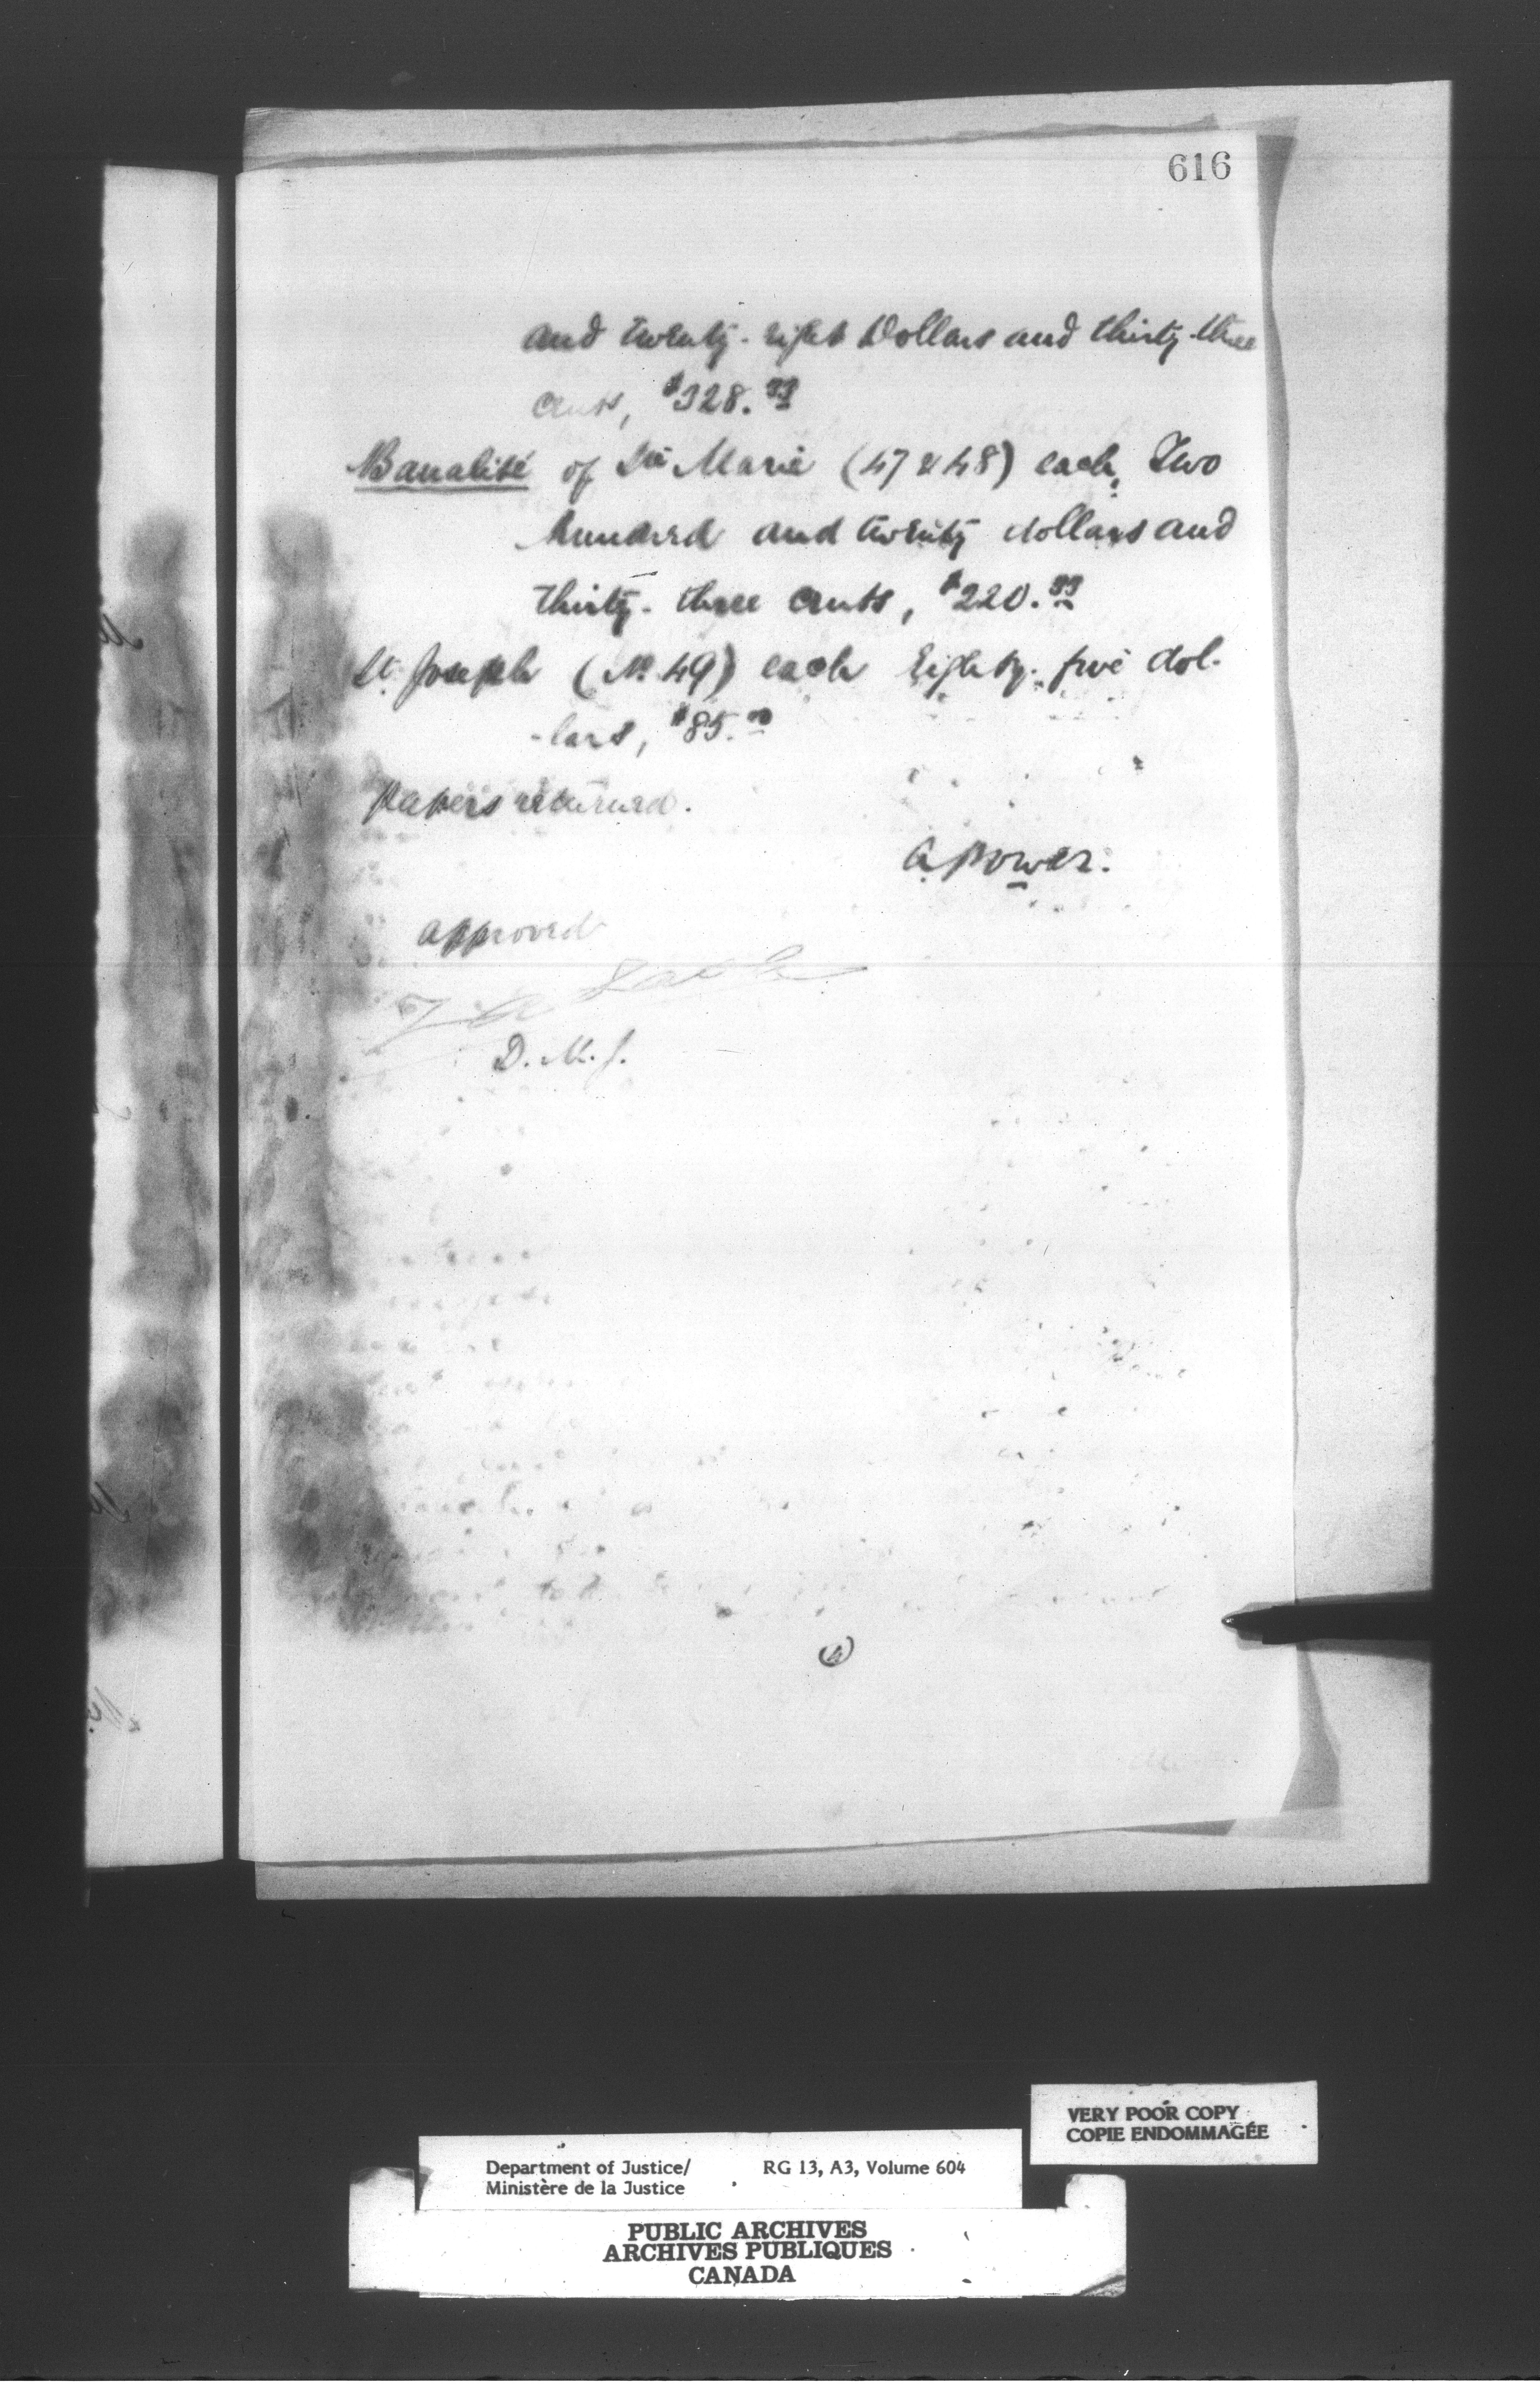 616
and twenty-eight Dollars and thirty-three
cents, $328.33
Banalité of Ste Marie (47 & 48) each, Two
hundred and twenty dollars and
thirty-three cents, $220.33
St. Joseph (No 49) each Eighty-five dol-
-lars, $85.00
Papers returned.
A Power.
approved
D.M.J.
VERY POOR COPY
COPIE ENDOMMAGÉE
Department of Justice/ RG 13, A3, Volume 604
Ministère de la Justice
PUBLIC ARCHIVES
ARCHIVES PUBLIQUES
CANADA